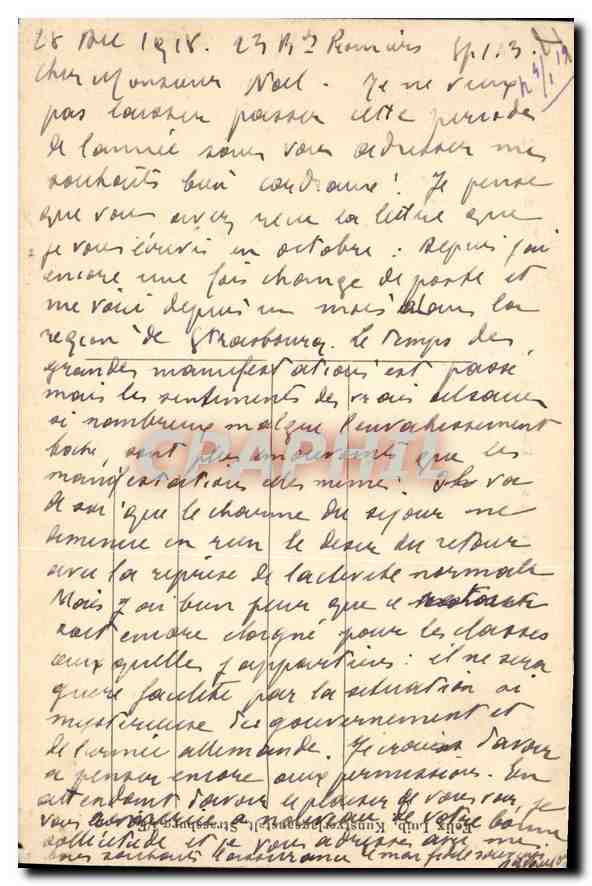 28 Dec 1918. 23 Bd Romains Sp.1.3.
Cher Monsieur Noel. Je ne veux
pas laisser passer cette periode
de l'année sans vous adresser mes
souhaits bien cordiaux! Je pense
que vous avez recu la lettre que
je vous écrivis en octobre : Depuis j'ai
encore une fois changé de poste et
me voici depuis un mois dans la
region de Strasbourg. Le temps des
grandes manifestations est passé
mais les sentiments des vrais alsaciens
si nombreux malgré l'envahissement
boche, sont plus émouvants que les
manifestations elles mêmes. Il va
de soi que le charme du séjour ne
diminue en rien le désir du retour
avec la reprise de l'activité normale
Mais j'ai bien peur que ce
soit encore éloigné pour les classes
auxquelles j'appartiens : il ne sera
guère facilité par la situation si
mysterieuse du gouvernement et
de l'armée allemande. Je crois d'avoir
à penser encore aux permissions. En
attendant d'avoir le plaisir de vous voir, je
vous à nouveau de votre bonne
sollicitude et je vous adresse avec mes
souhaits l'assurance de mon
Felix Luib, Kunstverlagsanstalt, Strassburg i/E.
CPAPHIL